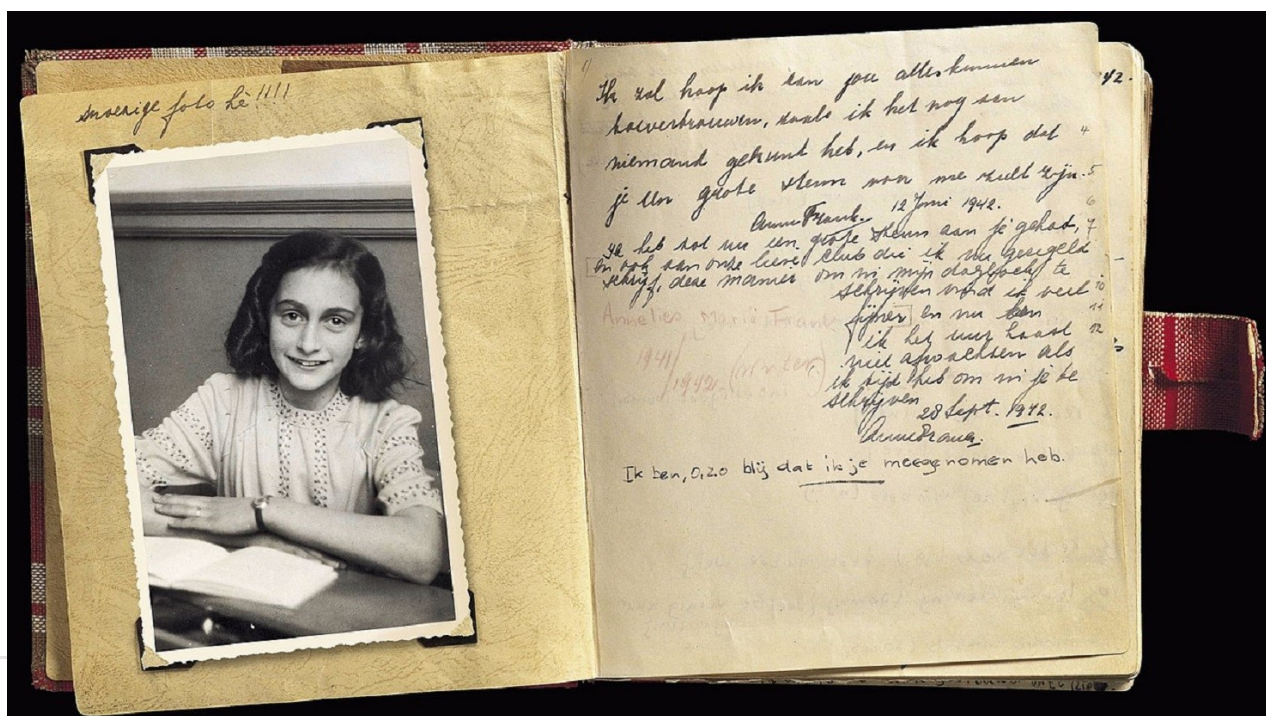 snoezige foto hè!!!!
Ik zal hoop ik aan jou alles kunnen
toevertrouwen, zoals ik het nog aan
niemand gekunt heb, en ik hoop dat 4
je een grote steun van me zult zijn. 5
Anne Frank. 12 Juni 1942. 6
Ik heb tot nu een grote steun aan je gehad, 7
en ook aan onze lieve club die ik nu geregeld
schrijf, deze manier om in mijn dagboek te
schrijven vind ik veel 10
fijner en nu kan 11
ik het uur haast 12
niet afwachten als
ik tijd heb om in je te
schrijven
28 Sept. 1942.
Anne Frank.
Annelies Marie Frank
1941/
1942.
Ik ben, o, zo blij dat ik je meegenomen heb.
42.